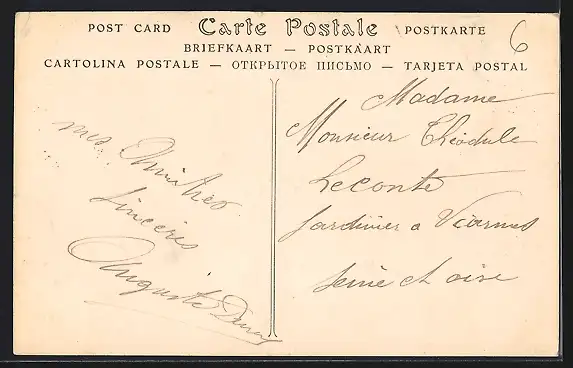 POST CARD Carte Postale POSTKARTE
BRIEFKAART — POSTKAART
CARTOLINA POSTALE — ОТКРЫТОЕ ПИСЬМО — TARJETA POSTAL
6
mes Amitiés
Sincères
Auguste
Madame
Monsieur Théodule
Leconte
Jardinier a Viarmes
Seine et oise